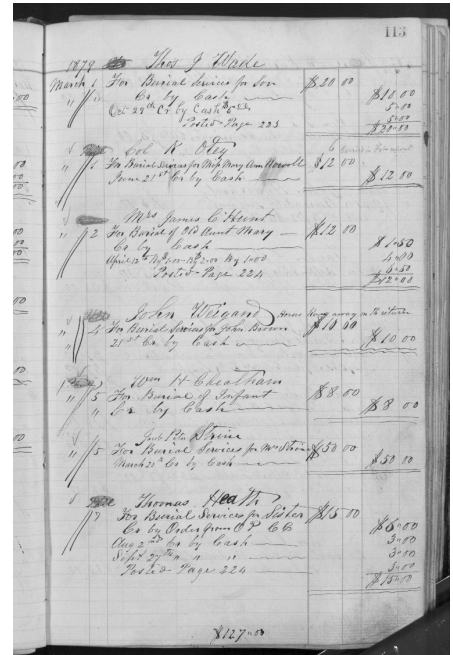 113
1879 Thos J Wade
March 1 For Burial Services for Son $20 00
" " Cr by Cash $10.00
Oct 29th Cr by Cash 5.00
Posted Page 225 5.00
$20.00
Col R Otey
" 1 For Burial Services for Miss Mary Ann $12 00
June 21st Cr by Cash $12.00
Mrs James C Hunt
" 2 For Burial of Old Aunt Mary $12 00
Cr by Cash $1.50
April 12th 4.00
Posted Page 224 6.50
$12.00
John Weigand Horses Runaway on the return
" 4 For Burial Services for John Brown $10 00
21st Cr by Cash $10 00
Wm H Cheatham
" 5 For Burial of Infant $8 00
" Cr by Cash $8 00
Strine
" 5 For Burial Services for Mrs Strine $50 00
March 21st Cr by Cash $50 00
Thomas Heath
" 7 For Burial Services for Sister $15 00
Cr by Order from $6.00
Aug 2nd Cr by Cash 3.00
Sept 27th " " " 3.00
Posted Page 224 3.00
$15.00
$127.00